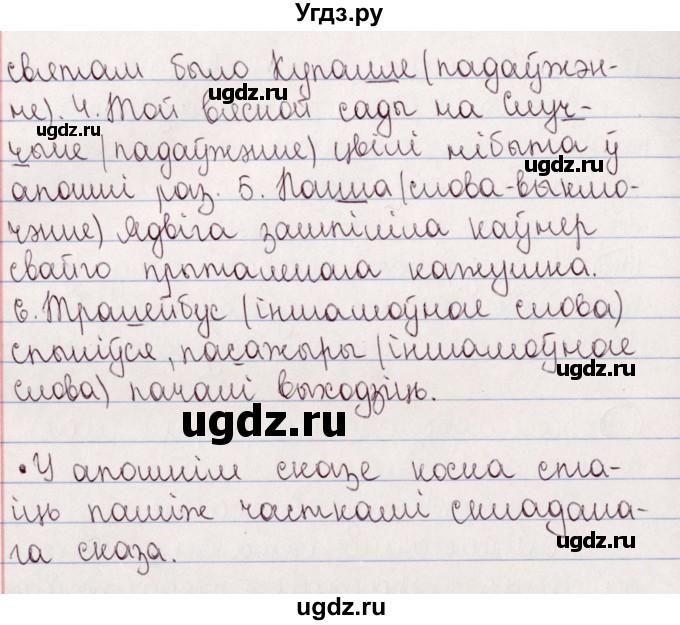 Угдз.ру
святам было Купалле (падаўжэн-
ugdz.ru
не). 4. Той вясной сады на Случ-
ugdz.ru
чыне (падаўжэнне) цвілі нібыта ў
ugdz.ru
апошні раз. 5. Панна (слова-выклю-
чэнне) Ядвіга зашпіліла каўнер
свайго прыталенага кажушка.
6. Тралейбус (іншамоўнае слова)
спыніўся, пасажыры (іншамоўнае
слова) пачалі выходзіць.
ugdz.ru
ugdz.ru
• У апошнім сказе коска ста-
іць паміж часткамі складана-
ugdz.ru
га сказа.
ugdz.ru